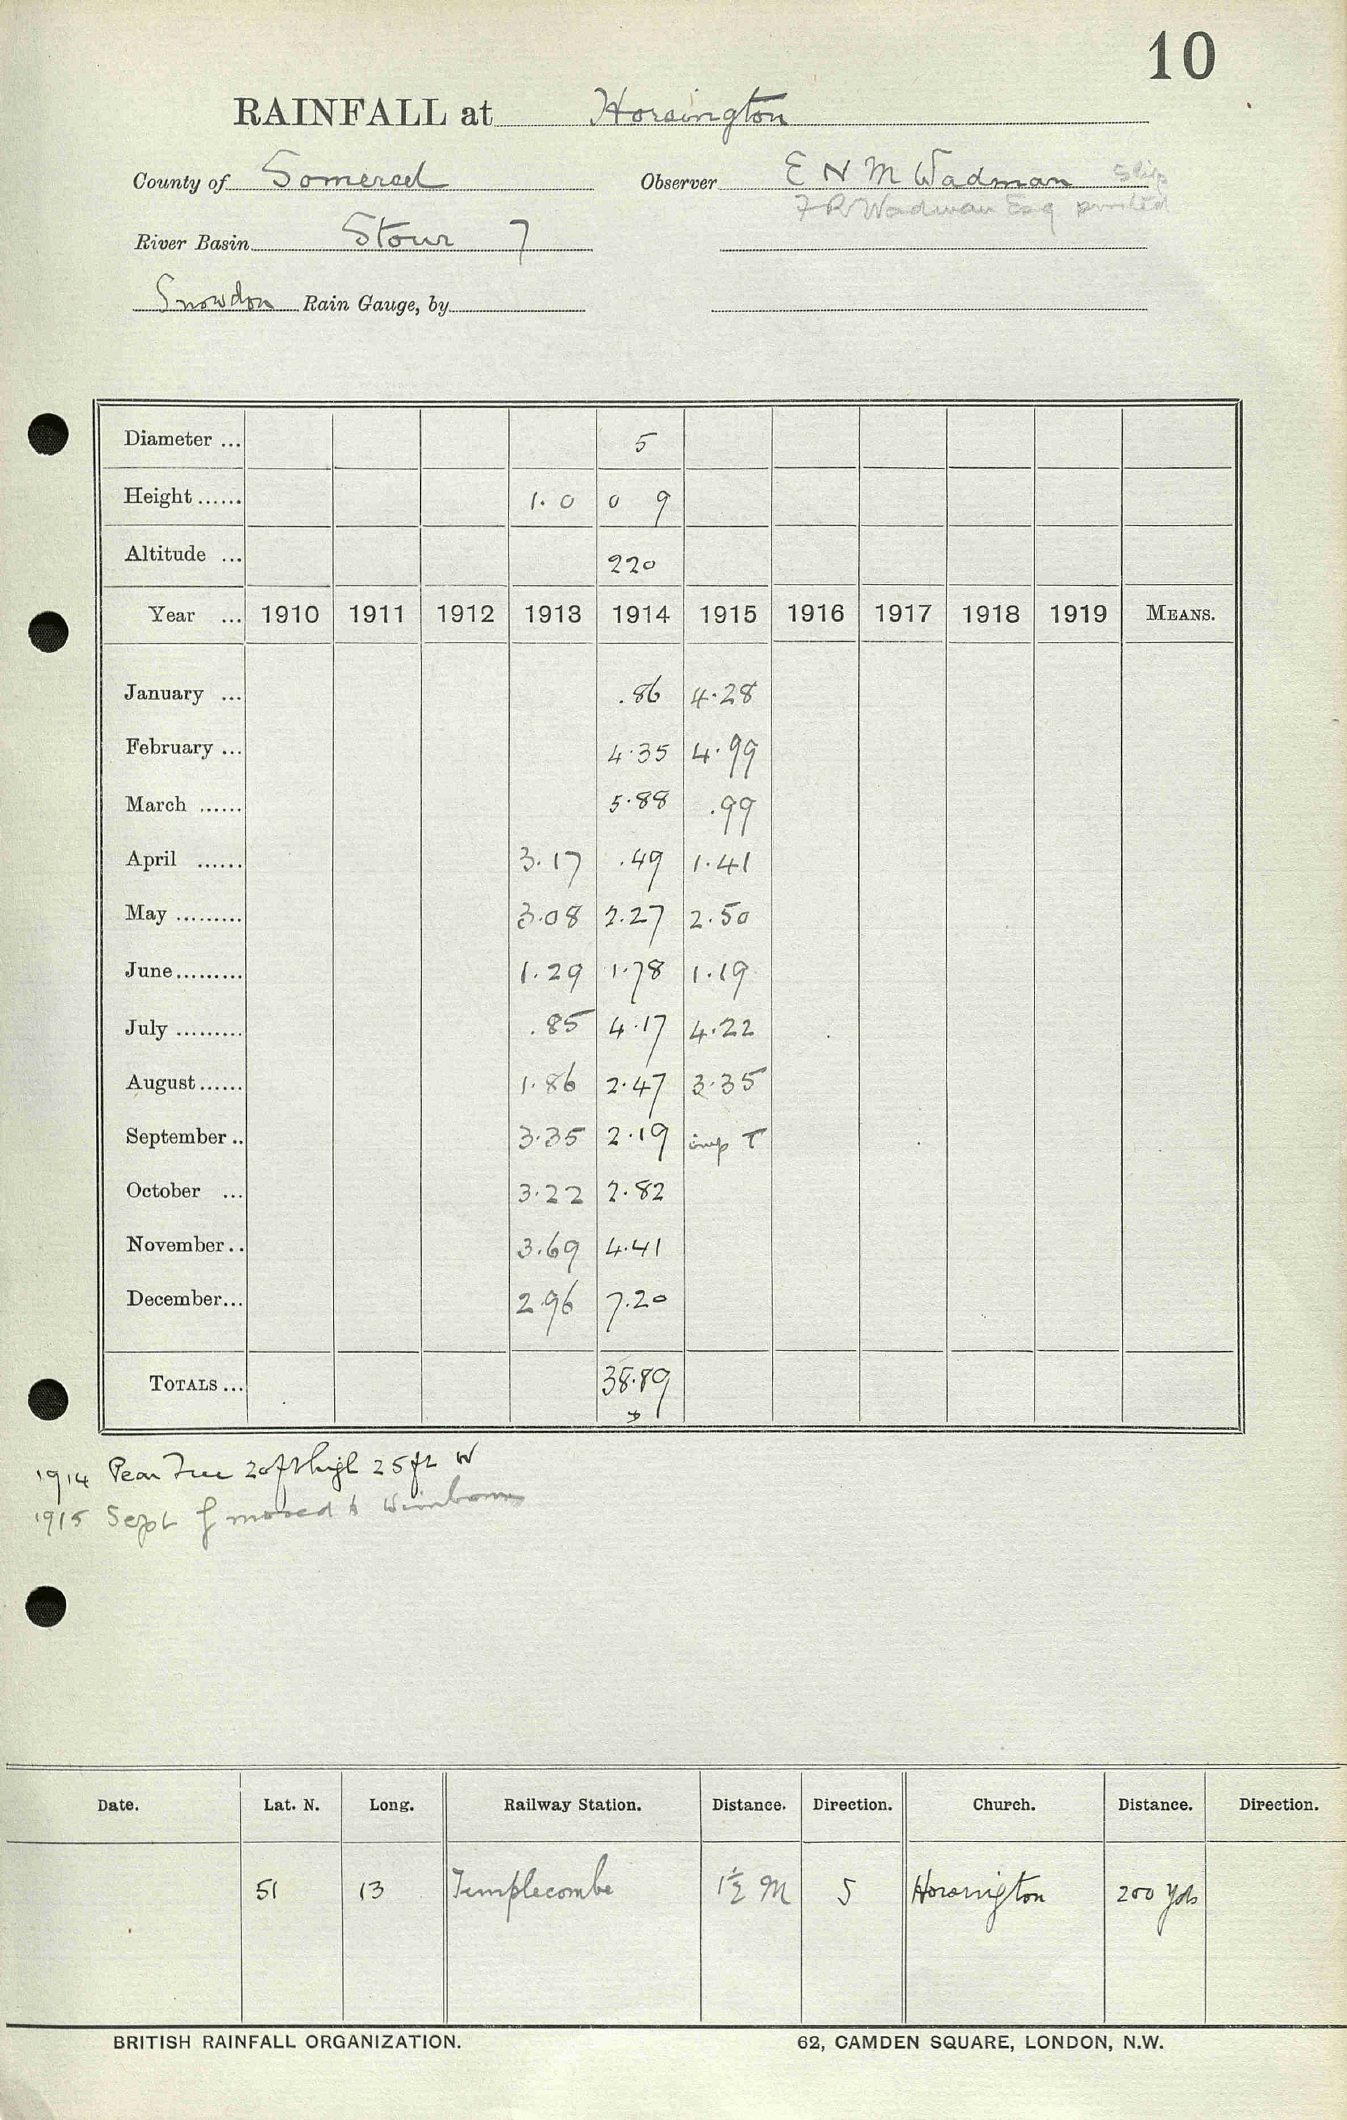 10
RAINFALL at Horsington
County of Somerset Observer E N M Wadman Slip
F R Wadman Esq printed
River Basin Stour 7
Snowdon Rain Gauge, by
Diameter ... 5
Height ...... 1.0 0 9
Altitude ... 220
Year ... 1910 1911 1912 1913 1914 1915 1916 1917 1918 1919 MEANS.
January ... .86 4.28
February ... 4.35 4.99
March ...... 5.88 .99
April ...... 3.17 .49 1.41
May ......... 3.08 2.27 2.50
June ......... 1.29 1.78 1.19
July ......... .85 4.17 4.22
August ...... 1.86 2.47 3.35
September .. 3.35 2.19 imp T
October ... 3.22 2.82
November .. 3.69 4.41
December ... 2.96 7.20
TOTALS ... 38.89
1914 Pear Tree 20ft high 25ft W
1915 Sept g moved to
Date. Lat. N. Long. Railway Station. Distance. Direction. Church. Distance. Direction.
51 13 Templecombe 1½ M S Horsington 200 yds
BRITISH RAINFALL ORGANIZATION. 62, CAMDEN SQUARE, LONDON, N.W.